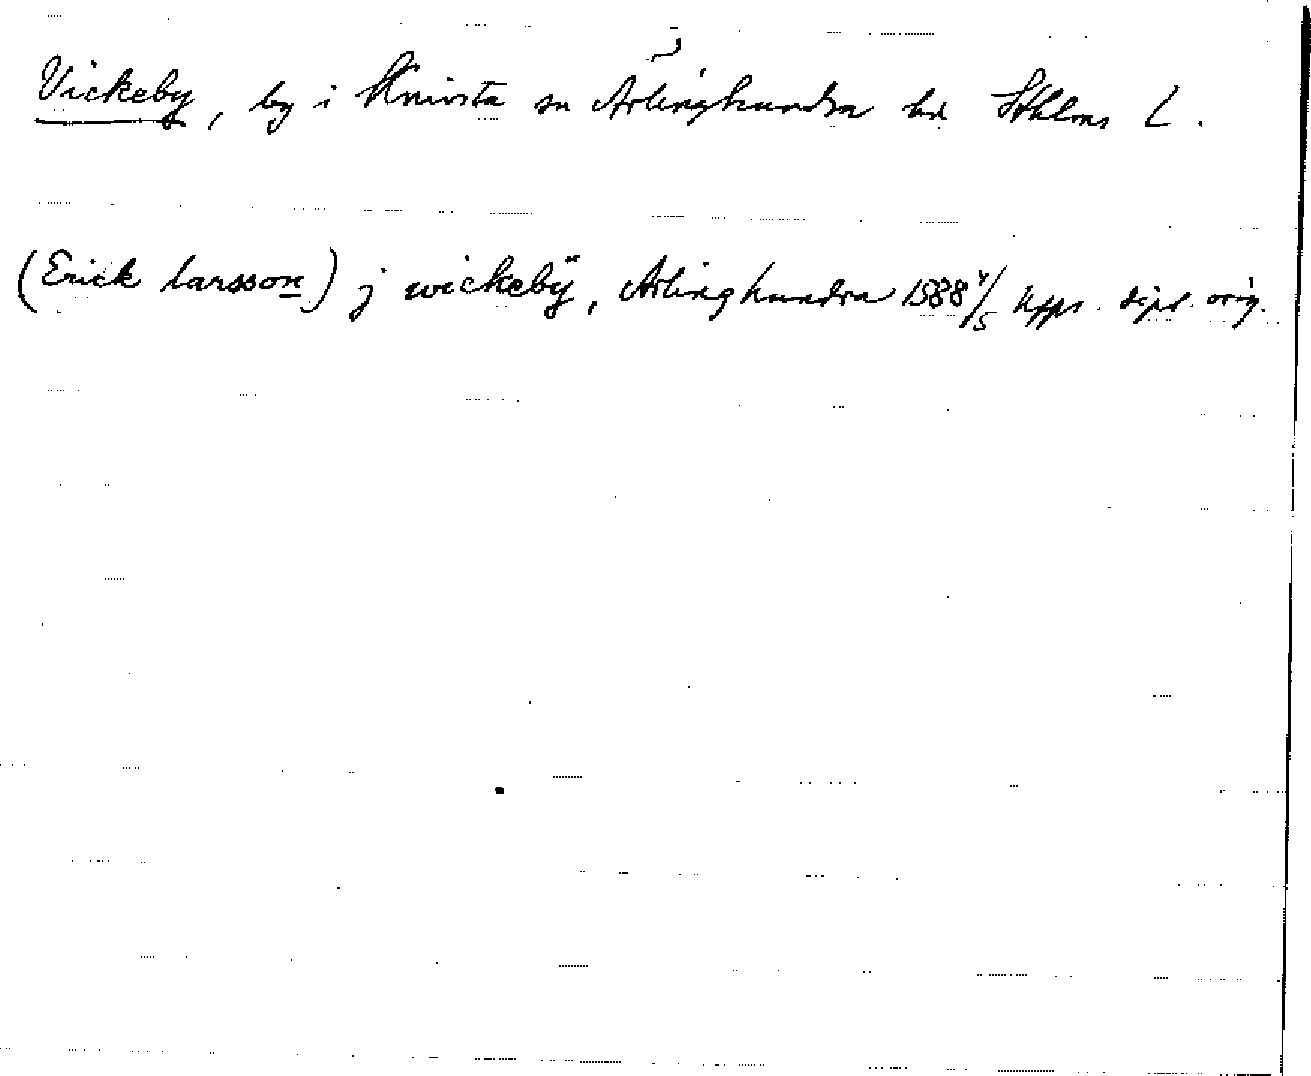 Vickeby, by i Knivsta sn Ärlinghundra hd Sthlms L.
(Erick larsson) j wickebÿ, Arlinghundra 1588 4/5 Upps. dipl. orig.